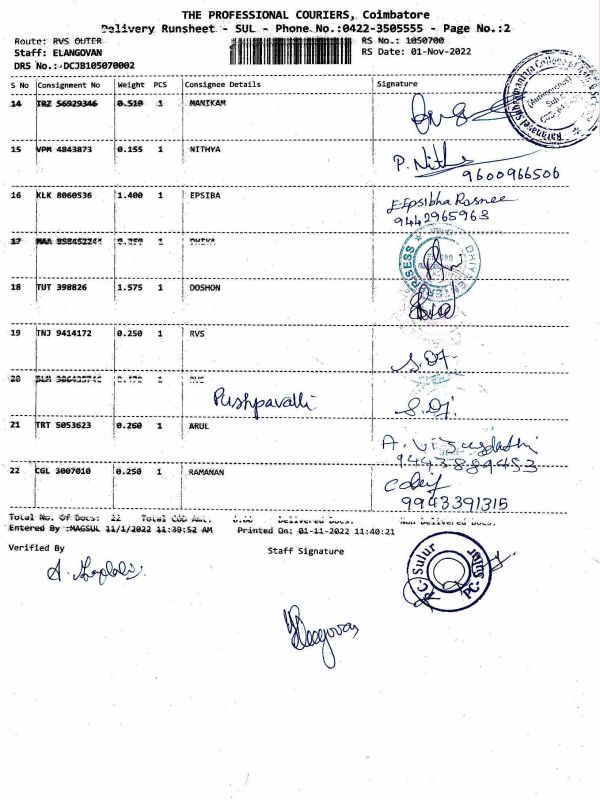 THE PROFESSIONAL COURIERS, Coimbatore
Delivery Runsheet - SUL - Phone No.:0422-3505555 - Page No.:2
Route: RVS OUTER
RS No.: 1050700
Staff: ELANGOVAN
RS Date: 01-Nov-2022
DRS No.:-DCJB105070002
S No Consignment No Weight PCS Consignee Details Signature
14 TRZ 56929346 0.510 1 MANIKAM
15 VPM 4843873 0.155 1 NITHYA
P. Nithya
9600966506
16 KLK 8060536 1.400 1 EPSIBA
E-Epsibha Rosnee
9442965963
17 1 DHIYA
18 TUT 398826 1.575 1 DOSHON
19 TNJ 9414172 0.250 1 RVS
20 1 RVS
Pushpavalli
21 TRT 5053623 0.260 1 ARUL
9443889453
22 CGL 3007010 0.250 1 RAMANAN
9943391315
Total No. Of Docs: 22 Total COD Amt. 0.00 Delivered Docs. Non Delivered Docs.
Entered By :MAGSUL 11/1/2022 11:39:52 AM Printed On: 01-11-2022 11:40:21
Verified By
Staff Signature
PC-Sulur
PC-Sulur
Elangovan